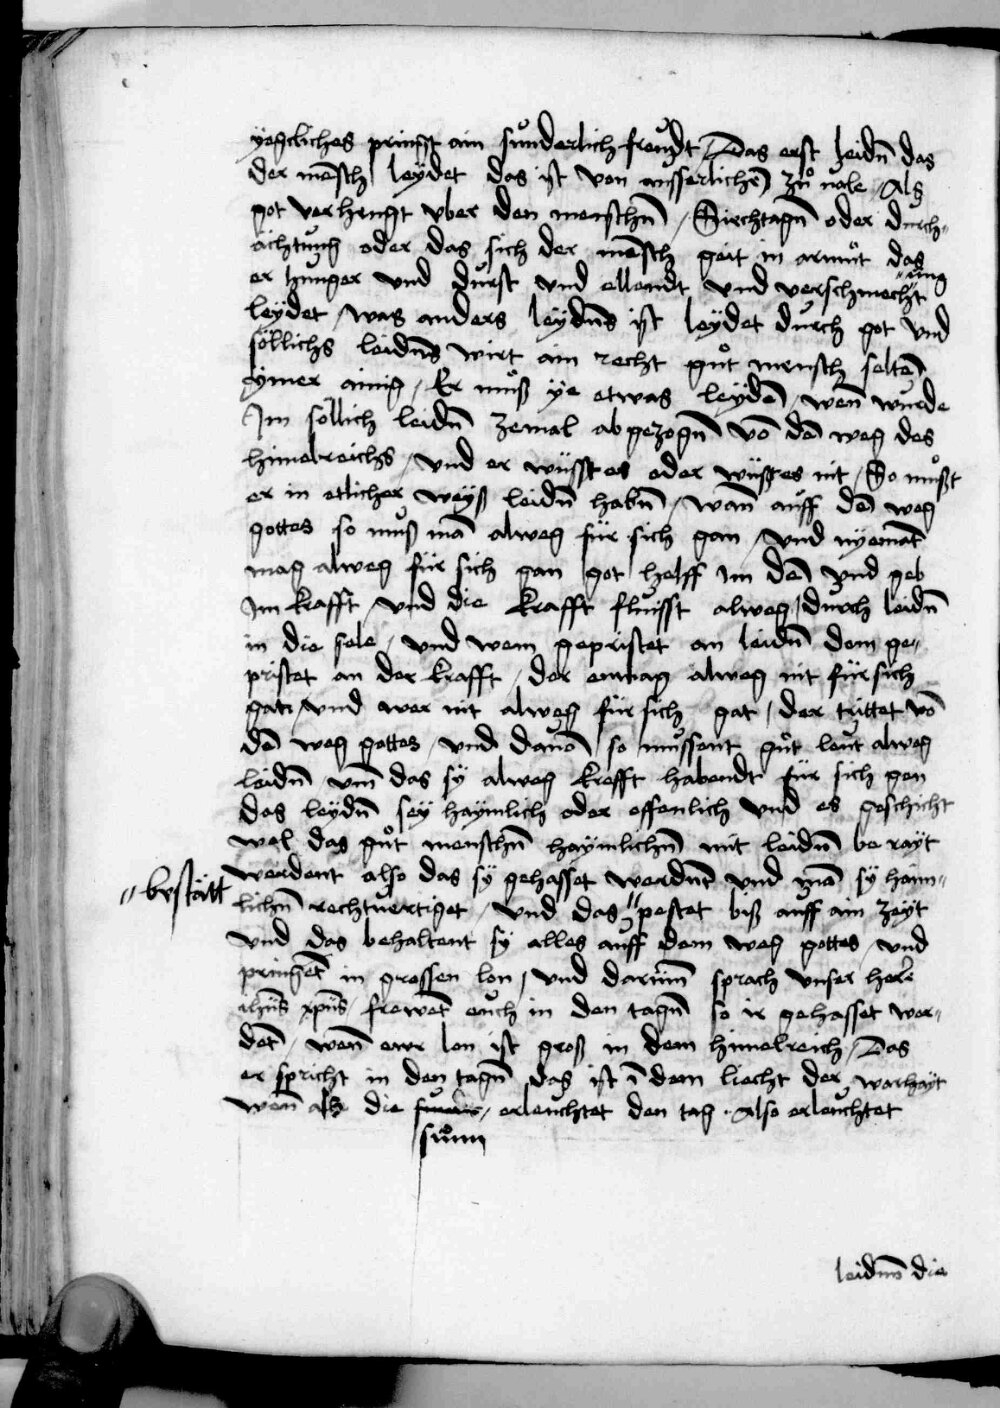 yegcliches pringt ain sunderlich freudt / Das erst leidn̄ das
der mēsch leydet das ist von ausserlichē zůuale / Als
got verhengt vber den menschn̄ / Siechtagn̄ oder durch„
ächtung oder das sich der mēsch geit in armůt das
er hunger vnd durst vnd ellendt vnd verschmecht„ung
leydet / was anders leydn̄s ist leydet durch got vnd
söllichs leidn̄s wirt ain recht gůt mensch seltē
ymer ainig / Er můß ye etwas leydē / wen̄ wurde
Im söllich leidn̄ zemal abgezogn̄ vō dē weg des
himelreichs / vnd er wüsst es oder wüsst es nit / So můßt
er in etlicher weyß leidn̄ habn̄ / wan̄ auff dē weg
gottes so muß mā alweg für sich gan / vnd nyemāt
mag alweg für sich gan got helff Im dē vnd geb
Im krafft / vnd die krafft flüisst alweg / durch leidn̄
in die sele / vnd wem gepristet an leidn̄ dem ge„
pristet an der krafft / der enmag alweg nit für sich
gan / vnd wer nit alweg für sich gat / der trittet vō
dē weg gottes / vnd dauō so mussent gůt leut alweg
leidn̄ vm̄ das sy alweg krefft habendt für sich gen
das leydn̄ sey haymlich oder offenlich vnd es geschicht
wol das gůt menschn̄ haymlichn̄ mit leidn̄ berayt
werdent also das sy gehasset werdn̄t vnd mā sy haim„
„bestätt
lichn̄ rechtuertiget / vnd das „ pestet biß auff ain zeyt
vnd das behaltent sy alles auff dem weg gottes / vnd
pringēt in grossen lon / vnd darum̄ sprach vnser here
ihūs xpūs / frewēt euch in den tagn̄ so ir gehasset wer„
dēt / wen̄ ewr lon ist groß in dem himelreich / Das
er spricht in den tagn̄ das ist ī dem liecht der warhayt
wen̄ als die sunder / erleuchtet den tag · also erleuchtet
sůnn
leidn̄s die